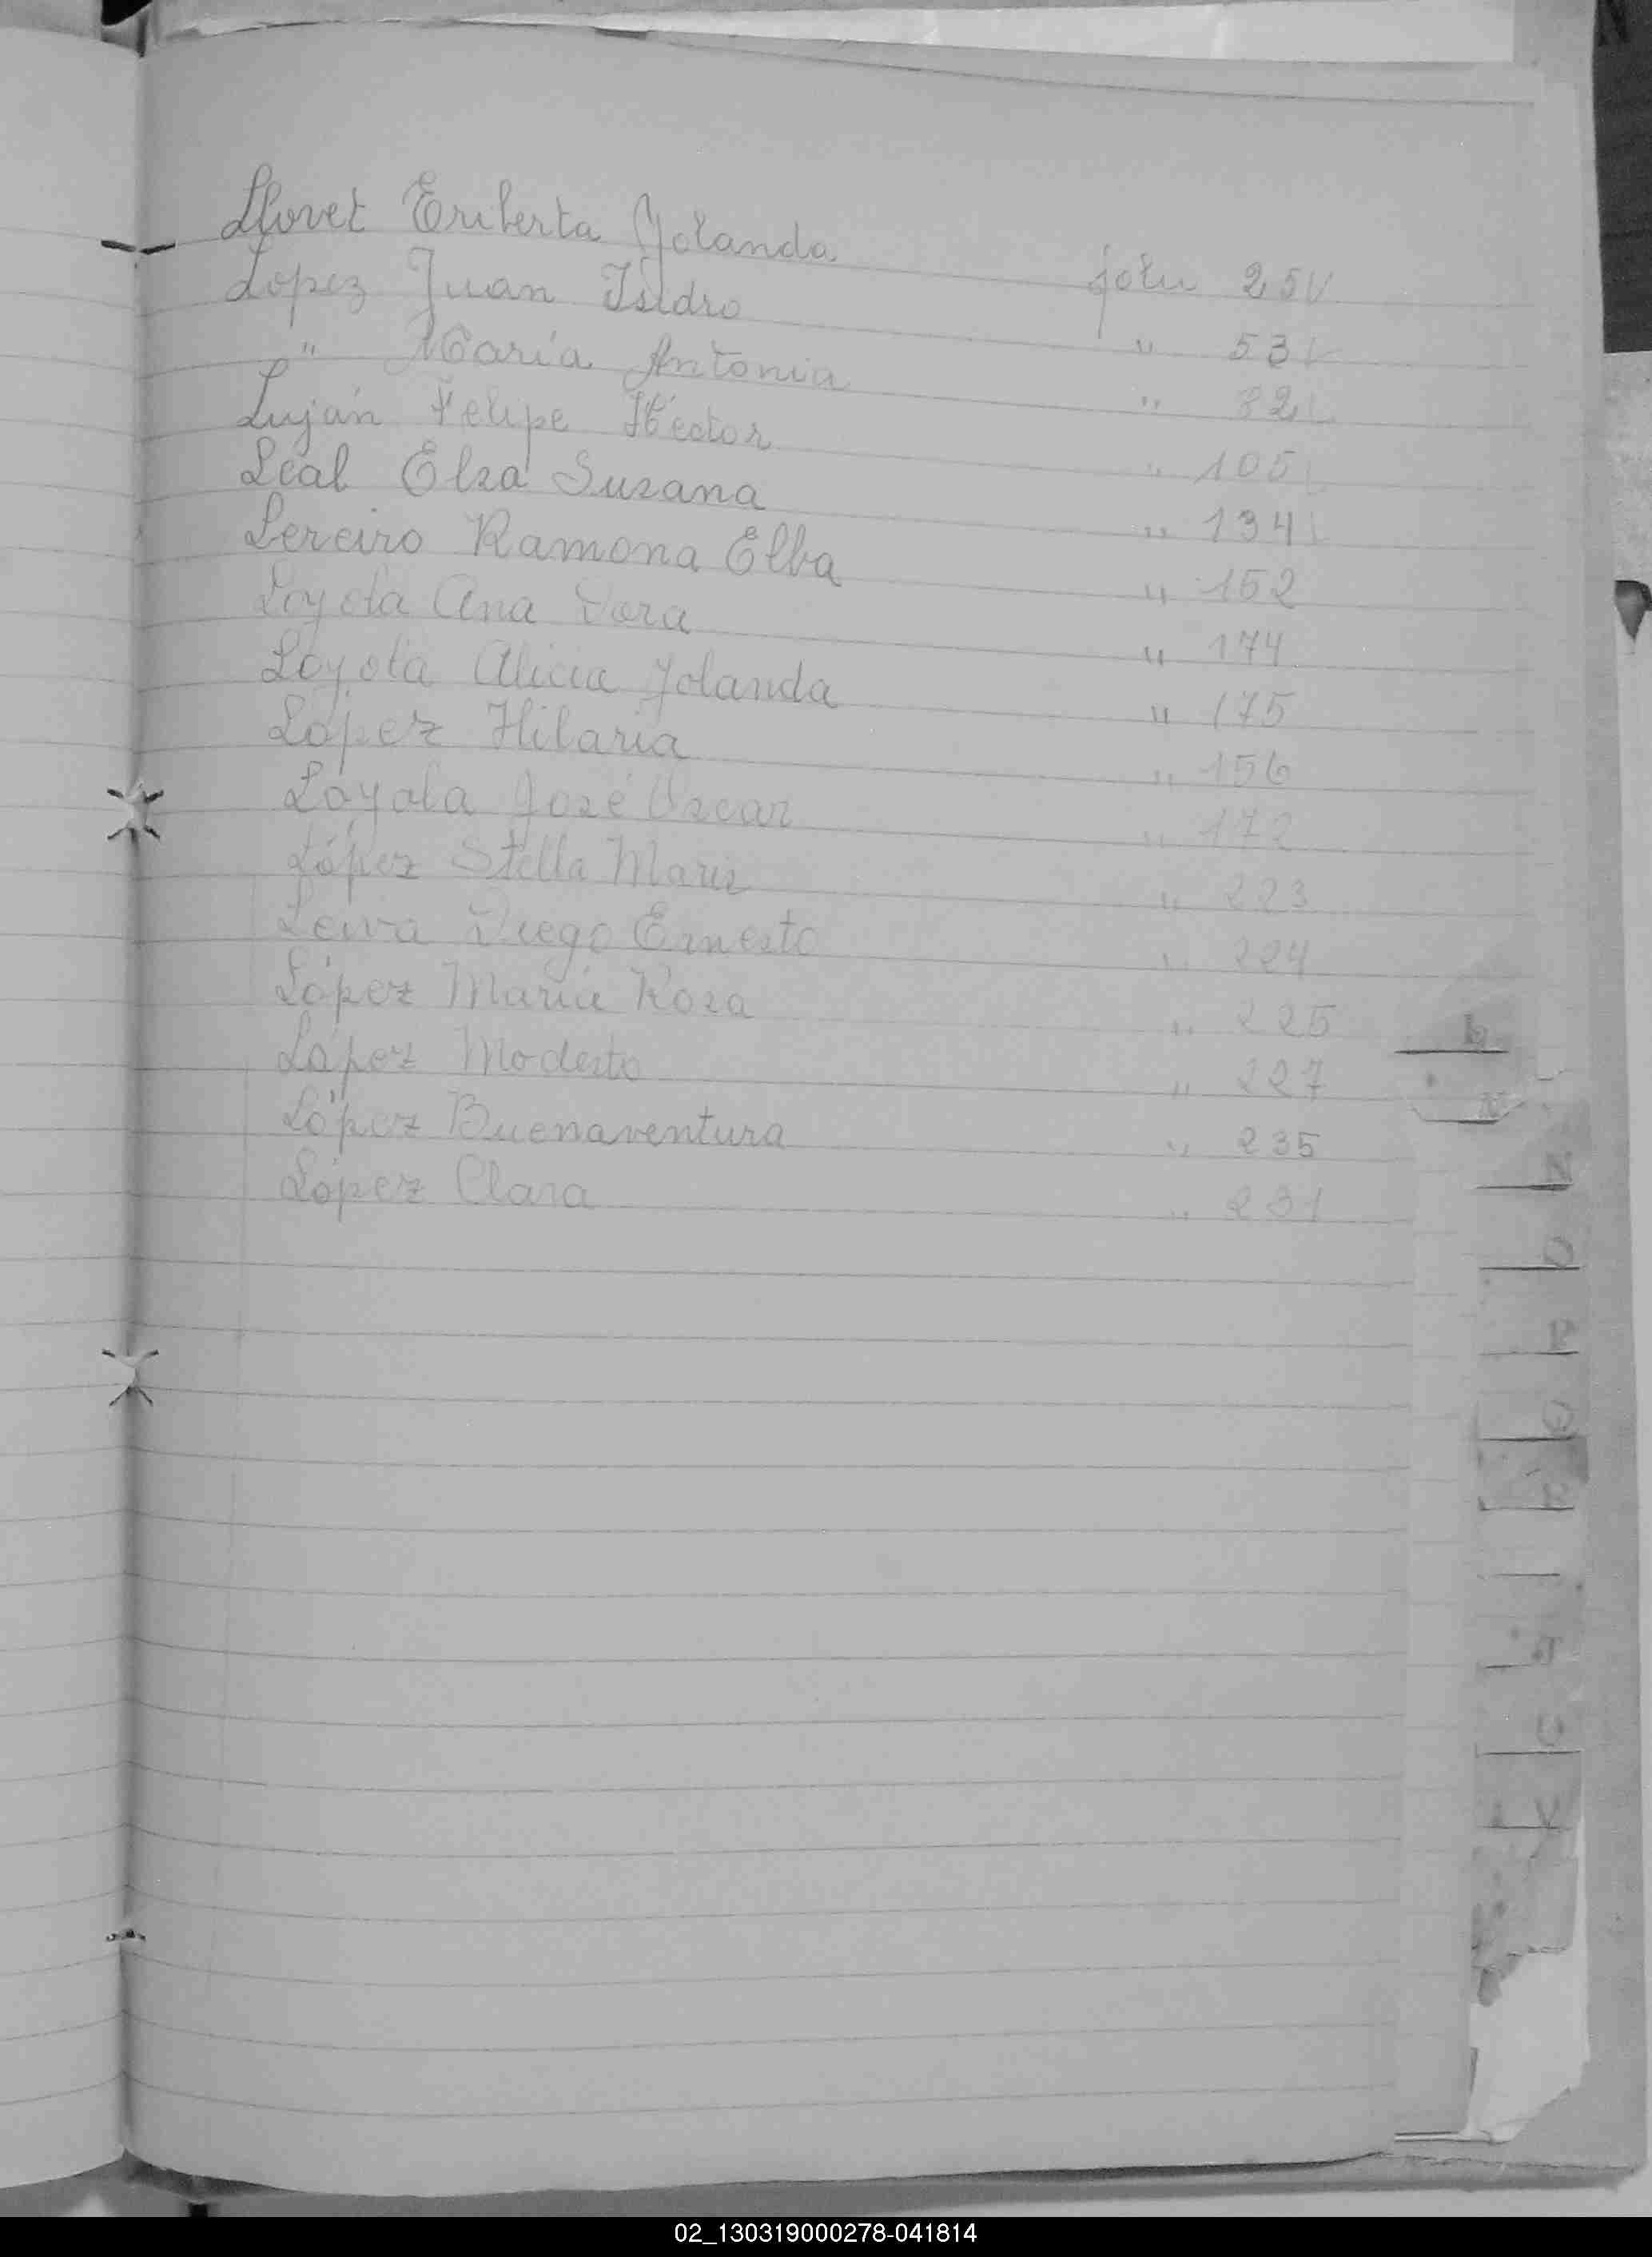 Llovet Eriberta Yolanda folio 25 V
Lopez Juan Isidro " 53 V
" María Antonia " 82 L
Luján Felipe Héctor " 105 L
Leal Elsa Susana " 134 L
Lereiro Ramona Elba " 152
Loyola Ana Dora " 174
Loyola Alicia Yolanda " 175
López Hilaria " 156
Loyola José Oscar " 172
López Stella Maris " 223
Leiva Diego Ernesto " 224
López María Rosa " 225
López Modesto " 227
López Buenaventura " 235
López Clara " 231
N
O
P
Q
R
T
U
V
02_130319000278-041814